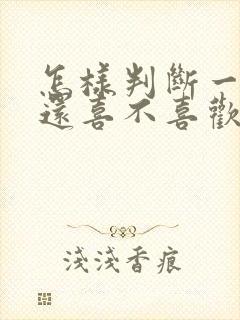 怎樣判斷一
還喜不喜歡
淺淺香痕